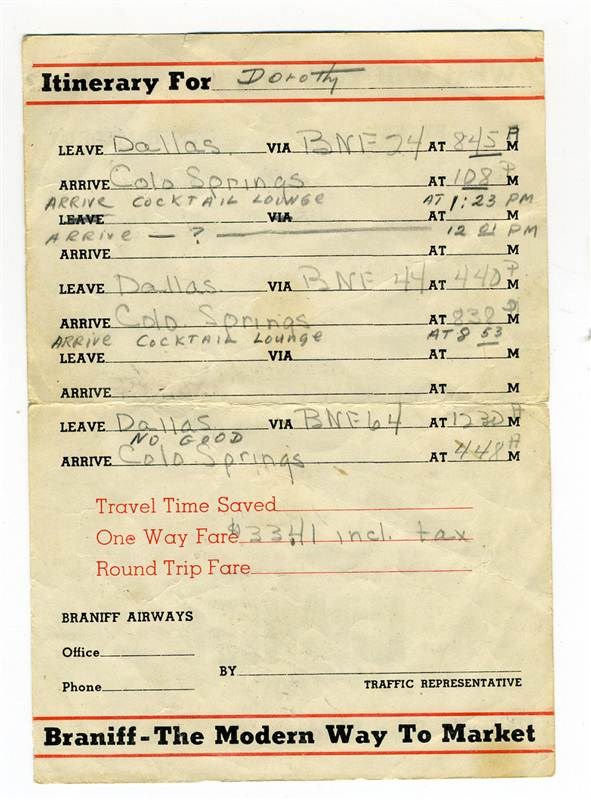 Itinerary For Dorothy
LEAVE Dallas VIA BNF 24 AT 845 A M
ARRIVE Colo Springs AT 108 P M
ARRIVE COCKTAIL LOUNGE AT 1:23 PM
LEAVE VIA AT M
ARRIVE — ? — 12 01 PM
ARRIVE AT M
LEAVE Dallas VIA BNF 44 AT 440 P M
ARRIVE Colo Springs AT 838 P M
ARRIVE COCKTAIL Lounge AT 8 53
LEAVE VIA AT M
ARRIVE AT M
LEAVE Dallas VIA BNF 64 AT 1230 A M
NO GOOD
ARRIVE Colo Springs AT 448 A M
Travel Time Saved
One Way Fare $33.41 incl. tax
Round Trip Fare
BRANIFF AIRWAYS
Office
BY
Phone
TRAFFIC REPRESENTATIVE
Braniff-The Modern Way To Market